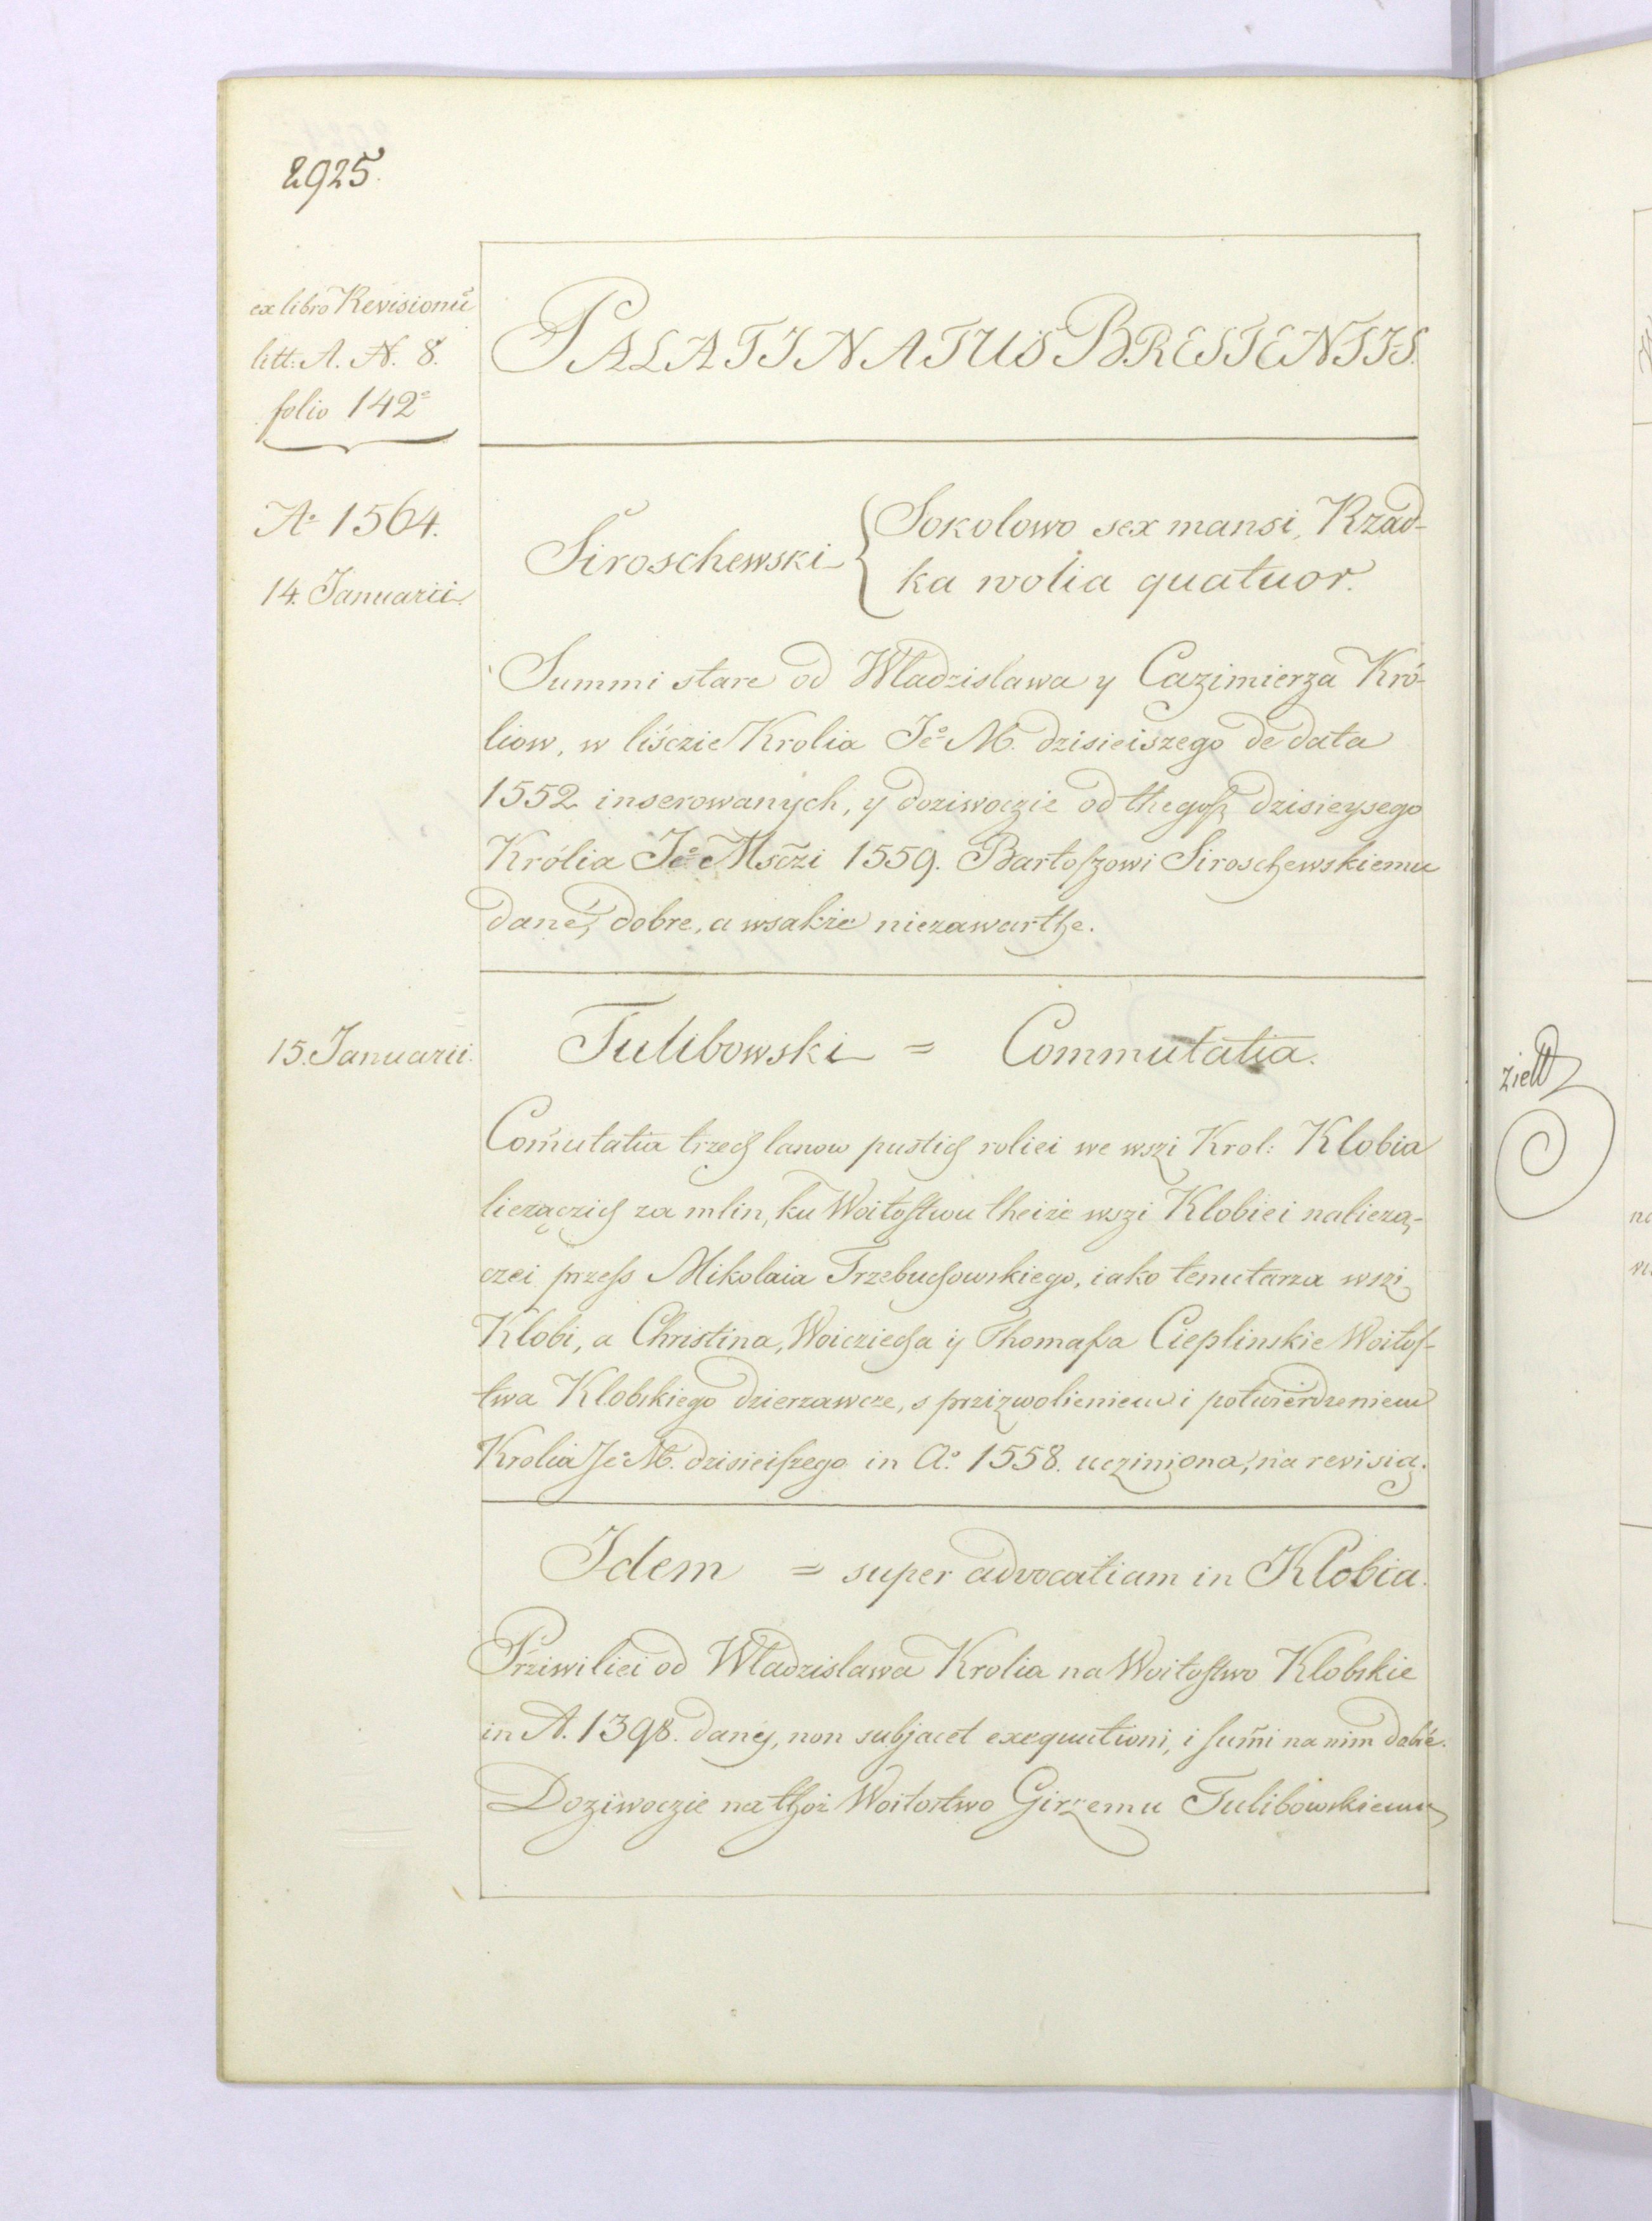 2925.
ex libro Revisionũ
litt: A. N. 8.
folio 142º
PALATINATUS BRESTENSIS.
Aº 1564.
14. Januarii
Siroschewski { Sokolowo sex mansi, Rzad-
ka wolia quatuor.
Summi stare od Wladzislawa y Cazimierza Kró-
liow, w liśczie Krolia Jeº M. dzisieiszego de data
1552 inserowanych, y doziwoczie od thegosz dzisieysego
Królia Jeº Msczi 1559. Bartoszowi Siroschewskiemu
dané, dobre, a wsakże niezawarthe.
15. Januarii.
Tulibowski = Commutatia.
Com̃utatia trzech lanow pustich roliei we wszi Krol: Klobia
liezączich za mlin, ku Woitostwu theiże wszi Klobiei nalieżą-
czei przess Mikolaia Trzebuchowskiego, iako tenutarza wszi
Klobi, a Christina, Woicziecha ij Thomassa Cieplinskie Woitos-
twa Klobskiego dzierzawcze, s przizwolieniem i potwierdzeniem
Krolia Jeº M. dzisieiszego in Aº 1558. ucziniona, na revisią.
Idem = super advocatiam in Klobia.
Prziwiliei od Wladzislawa Krolia na Woitostwo Klobskie
in A. 1398. dany, non subjacet exequutioni, i sum̃i na nim
Doziwoczie na thoż Woitostwo Girzemu Tulibowskiemu